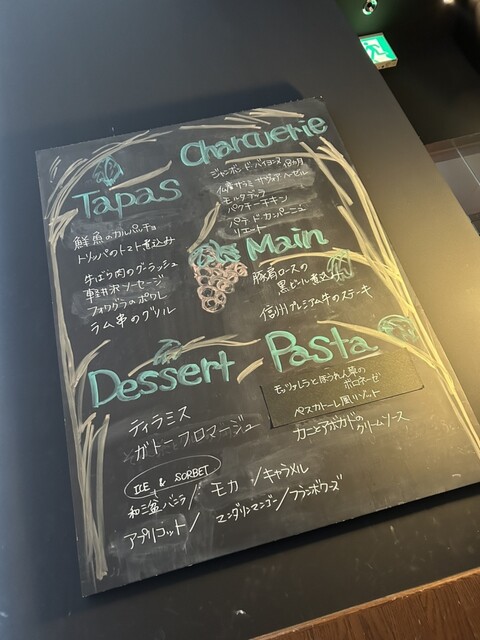 Tapas
鮮魚のカルパッチョ
トリッパのトマト煮込み
牛ばら肉のグーラッシュ
軽井沢ソーセージ
フォワグラのポワレ
ラム串のグリル
Charcuerie
ジャンボン・ド・バイヨンヌ
モルタデッラ
パクチーチキン
パテ・ド・カンパーニュ
リエート
Main
豚肩ロースの
黒ビール煮込み
信州プレミアム牛のステーキ
Dessert
ティラミス
ガトーフロマージュ
ICE & SORBET
和三盆バニラ/ モカ /キャラメル
アプリコット/ マンダリンマンゴー/フランボワーズ
Pasta
モッツァレラとほうれん草の
ボロネーゼ
ペスカトーレ風リゾット
カニとアボカドの
クリームソース